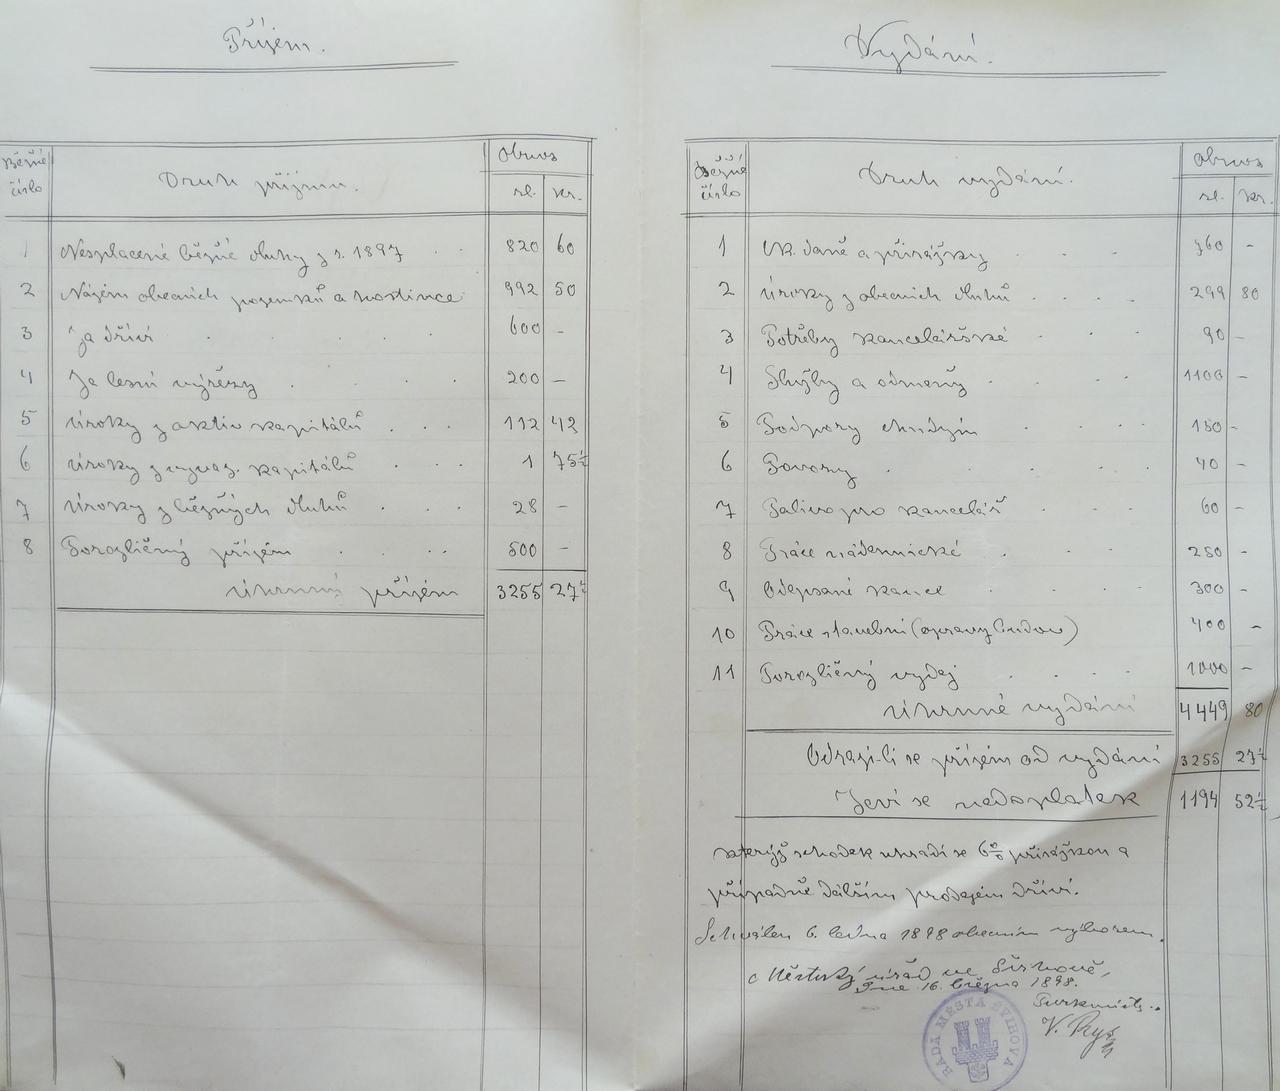 Příjem.
Běžné číslo
Druh příjmu.
Obnos
zl. kr.
1 Nesplacené běžné dluhy z r. 1897 820 60
2 Nájem obecních pozemků a hostince 992 50
3 Za dříví 600 –
4 Za lesní výřezy 200 –
5 Úroky z aktiv kapitálů 112 42
6 Úroky z vyvaz. kapitálů 1 75½
7 Úroky z běžných dluhů 28 –
8 Porozličný příjem 500 –
Úhrnný příjem 3255 27½
Vydání.
Běžné číslo
Druh vydání.
Obnos
zl. kr.
1 Ck. daně a přirážky 760 –
2 Úroky z obecních dluhů 299 80
3 Potřeby kancelářské 90 –
4 Služby a odměny 1100 –
5 Podpory chudým 150 –
6 Povozy 40 –
7 Palivo pro kancelář 60 –
8 Práce nádennické 250 –
9 Odepsané kauce 300 –
10 Práce stavební (opravy budov) 400 –
11 Porozličný vydej 1000 –
Úhrnné vydání 4449 80
Odrazí-li se příjem od vydání 3255 27½
Jeví se nedoplatek 1194 52½
kterýž schodek uhradí se 6% přirážkou a
případně dalším prodejem dříví.
Schválen 6. ledna 1898 obecním výborem.
Městský úřad ve Švihově,
Dne 16. března 1898.
Purkmistr
RADA MĚSTA ŠVIHOVA